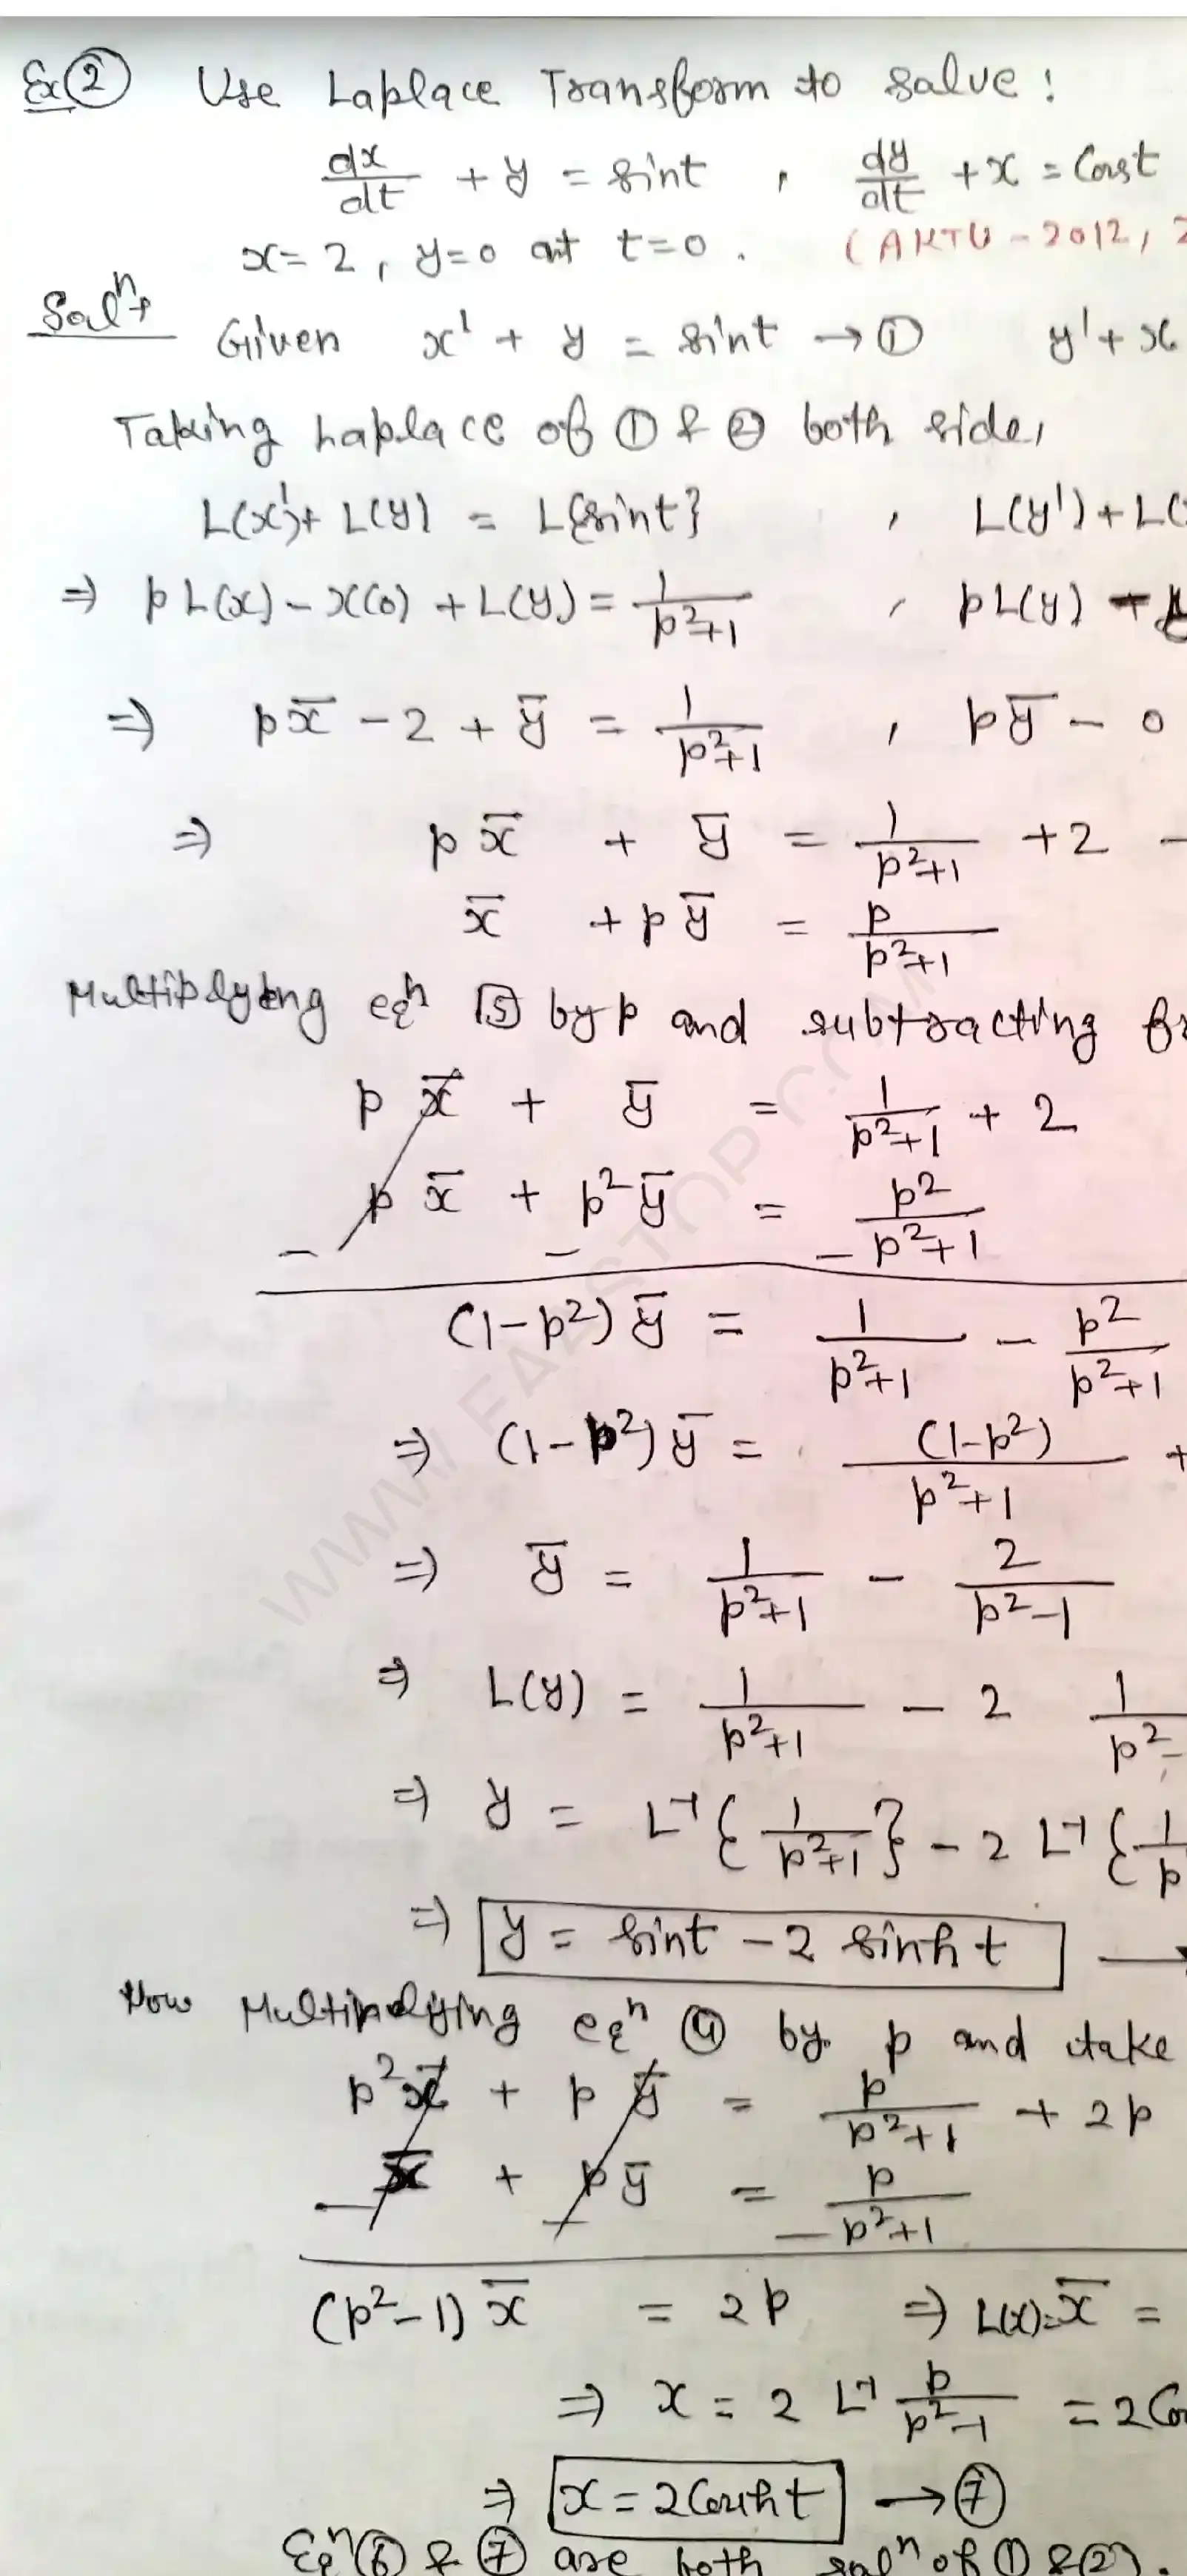 Ex ② Use Laplace Transform to solve :
dx/dt + y = sint , dy/dt + x = Cost
x = 2 , y=0 at t=0 . (AKTU - 2012, 2
Solⁿ→ Given x' + y = sint → ① y' + x
Taking Laplace of ① & ② both side,
L(x') + L(y) = L{sint} , L(y') + L(
⇒ p L(x) - x(0) + L(y) = 1/(p²+1) , p L(y) -
⇒ px̄ - 2 + ȳ = 1/(p²+1) , pȳ - 0
⇒ p x̄ + ȳ = 1/(p²+1) + 2 -
x̄ + p ȳ = p/(p²+1)
Multiplying eqⁿ ⑤ by p and subtracting
p x̄ + ȳ = 1/(p²+1) + 2
p x̄ + p² ȳ = p²/(p²+1)
- - -
(1-p²) ȳ = 1/(p²+1) - p²/(p²+1)
⇒ (1-p²) ȳ = (1-p²)/(p²+1) +
⇒ ȳ = 1/(p²+1) - 2/(p²-1)
⇒ L(y) = 1/(p²+1) - 2 1/(p²-
⇒ y = L⁻¹{1/(p²+1)} - 2 L⁻¹{1/p
⇒ y = sint - 2 sinh t
Now Multiplying eqⁿ ④ by p and take
p² x̄ + p ȳ = p/(p²+1) + 2p
x̄ + p ȳ = p/(p²+1)
- - -
(p²-1) x̄ = 2p ⇒ L(x)=x̄ =
⇒ x = 2 L⁻¹ p/(p²-1) = 2 Co
⇒ x = 2 Cosh t → ⑦
Eqⁿ ⑥ & ⑦ are both solⁿ of ① & ②.
WWW.FAASTOP.COM